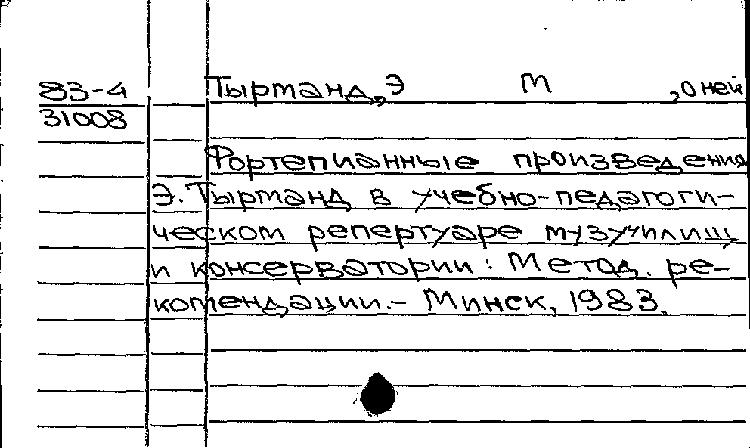 83-4 Тырманд, Э М , о ней
31008
Фортепианные произведения
Э. Тырманд в учебно-педагоги-
ческом репертуаре музучилищ
и консерватории: Метод. ре-
комендации.- Минск, 1983.